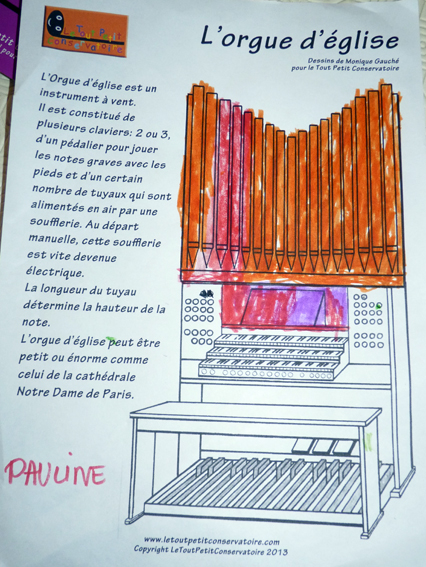 Le Tout Petit
Conservatoire
L'orgue d'église
Dessins de Monique Gauché
pour le Tout Petit Conservatoire
L'Orgue d'église est un
instrument à vent.
Il est constitué de
plusieurs claviers: 2 ou 3,
d'un pédalier pour jouer
les notes graves avec les
pieds et d'un certain
nombre de tuyaux qui sont
alimentés en air par une
soufflerie. Au départ
manuelle, cette soufflerie
est vite devenue
électrique.
La longueur du tuyau
détermine la hauteur de la
note.
L'orgue d'église peut être
petit ou énorme comme
celui de la cathédrale
Notre Dame de Paris.
PAULINE
www.letoutpetitconservatoire.com
Copyright LeToutPetitConservatoire 2013